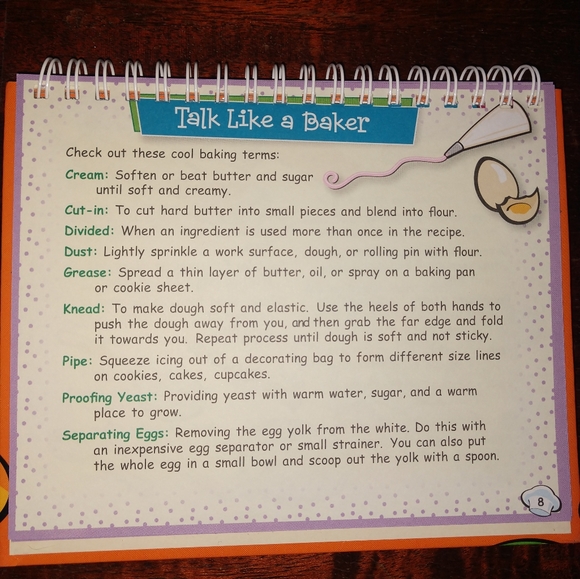 Talk Like a Baker
Check out these cool baking terms:
Cream: Soften or beat butter and sugar
until soft and creamy.
Cut-in: To cut hard butter into small pieces and blend into flour.
Divided: When an ingredient is used more than once in the recipe.
Dust: Lightly sprinkle a work surface, dough, or rolling pin with flour.
Grease: Spread a thin layer of butter, oil, or spray on a baking pan
or cookie sheet.
Knead: To make dough soft and elastic. Use the heels of both hands to
push the dough away from you, and then grab the far edge and fold
it towards you. Repeat process until dough is soft and not sticky.
Pipe: Squeeze icing out of a decorating bag to form different size lines
on cookies, cakes, cupcakes.
Proofing Yeast: Providing yeast with warm water, sugar, and a warm
place to grow.
Separating Eggs: Removing the egg yolk from the white. Do this with
an inexpensive egg separator or small strainer. You can also put
the whole egg in a small bowl and scoop out the yolk with a spoon.
8